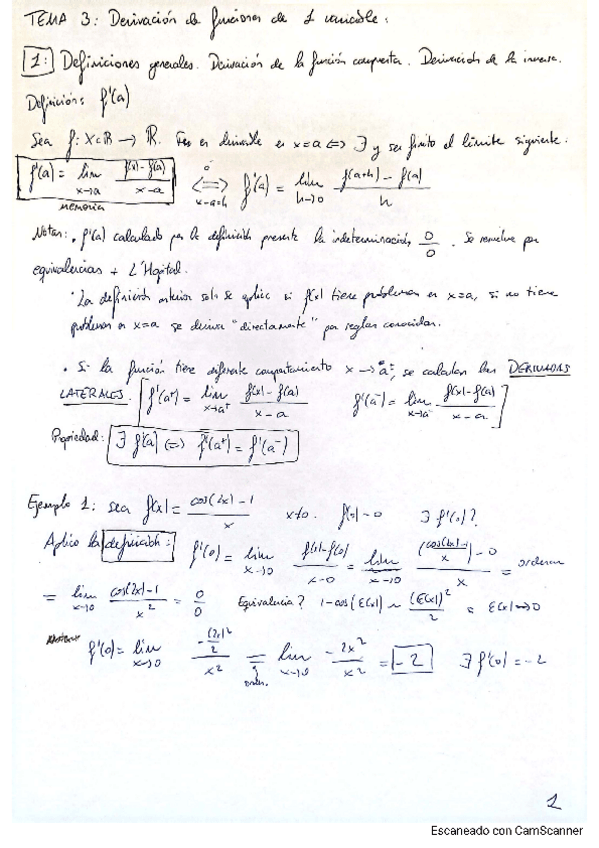 TEMA 3: Derivación de funciones de 1 variable:
1: Definiciones generales. Derivación de la función compuesta. Derivación de la inversa.
Definición: f'(a)
Sea f: X⊂ℝ → ℝ. es derivable en x=a ⟺ ∃ y ser finito el límite siguiente:
f'(a) = lim x→a (f(x)-f(a))/(x-a) ⟺ x-a=h f'(a) = lim h→0 (f(a+h) - f(a))/h
MEMORIA
Notas: • f'(a) calculado por la definición presenta la indeterminación 0/0. Se resuelve por
equivalencias + L'Hôpital.
• La definición anterior solo se aplica si f(x) tiene problemas en x=a, si no tiene
problemas en x=a se deriva "directamente" por reglas conocidas.
• Si la función tiene diferente comportamiento x → a±, se calculan las DERIVADAS
LATERALES. [f'(a⁺) = lim x→a⁺ (f(x)-f(a))/(x-a) f'(a⁻) = lim x→a⁻ (f(x)-f(a))/(x-a)]
Propiedad: ∃ f'(a) ⟺ f'(a⁺) = f'(a⁻)
Ejemplo 1: sea f(x) = (cos(2x)-1)/x x≠0. f(0)=0 ∃ f'(0)?
Aplico la definición: f'(0) = lim x→0 (f(x)-f(0))/(x-0) = lim x→0 ((cos(2x)-1)/x - 0)/x = ordenar
= lim x→0 (cos(2x)-1)/x² = 0/0 Equivalencia? 1-cos(E(x)) ~ (E(x))²/2 E(x)→0
f'(0) = lim x→0 (-(2x)²/2)/x² = lim x→0 -2x²/x² = -2 ∃ f'(0) = -2
1
Escaneado con CamScanner